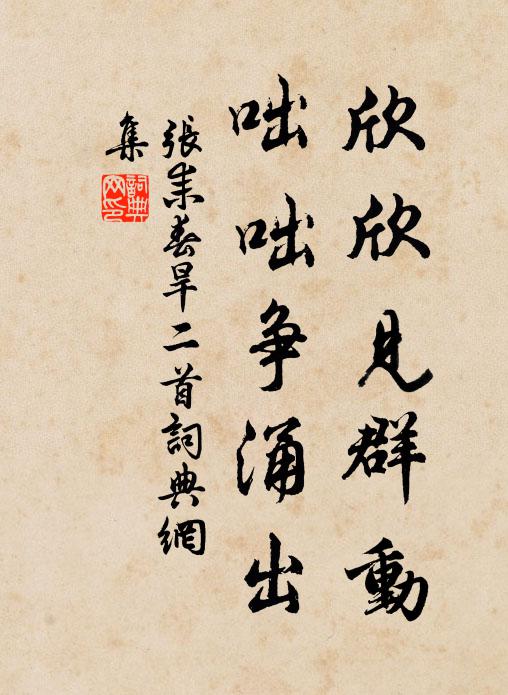 欣欣見群動
咄咄爭涌出
張耒春旱二首詞典網
集
詞典
网印